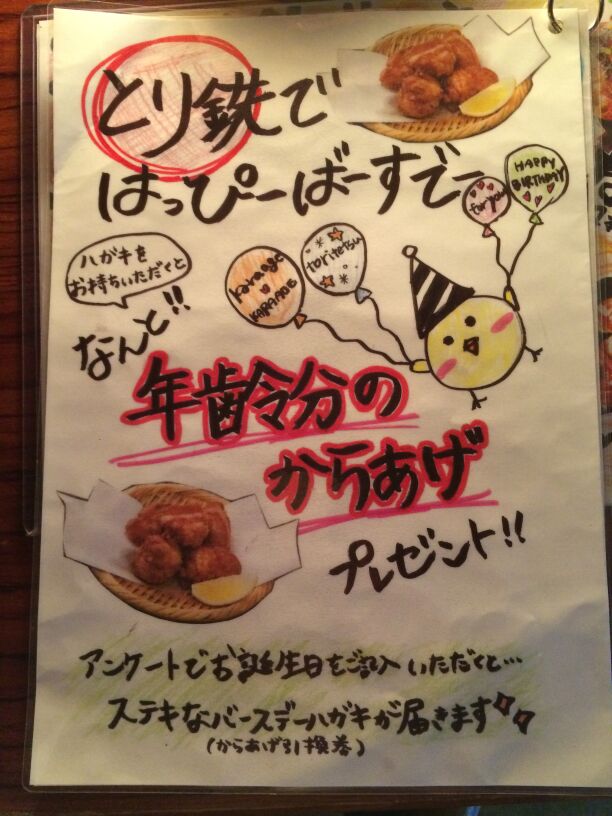 とり鉄で
はっぴーばーすでー
HAPPY
BIRTHDAY
for you
toritetsu
karaage
KARAAGE
ハガキを
お持ちいただくと
なんと!!
年齢分の
からあげ
プレゼント!!
アンケートでお誕生日をご記入いただくと…
ステキなバースデーハガキが届きます
(からあげ引換巻)